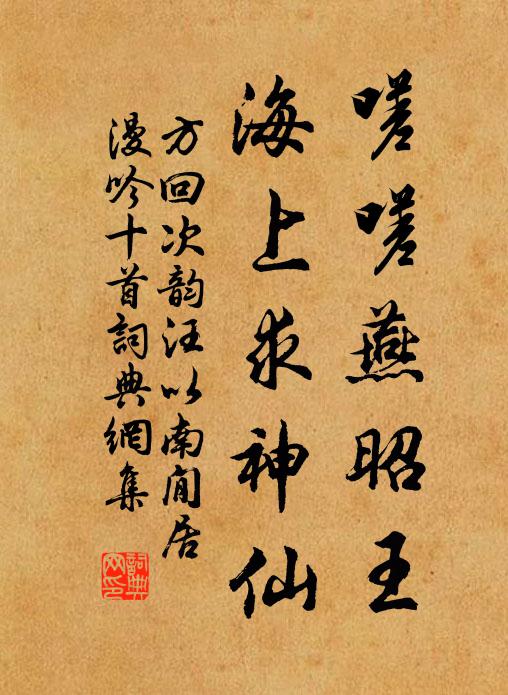 嗟嗟燕昭王
海上求神仙
方回次韵汪以南閒居
漫吟十首詞典網集
詞典网印